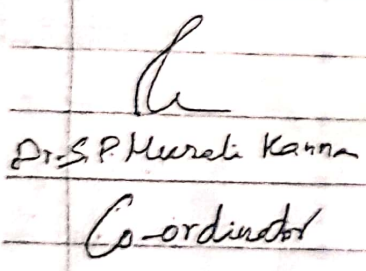 Dr. S. P. Murali Kanna
Co-ordinator